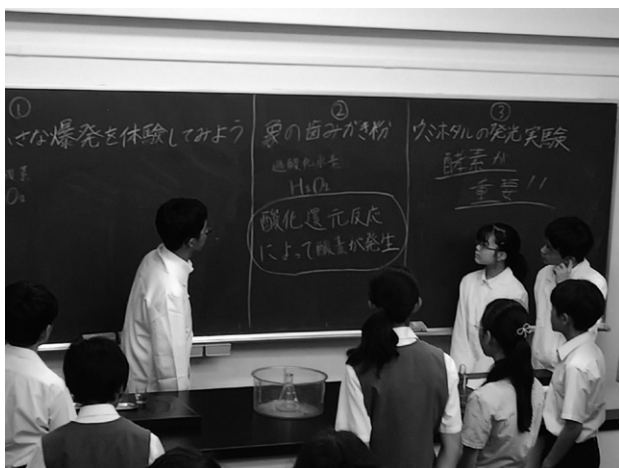 ①
さな爆発を体験してみよう
素
O₂
②
象の歯みがき粉
過酸化水素
H₂O₂
酸化還元反応
によって酸素が発生
③
ウミホタルの発光実験
酵素が
重要!!